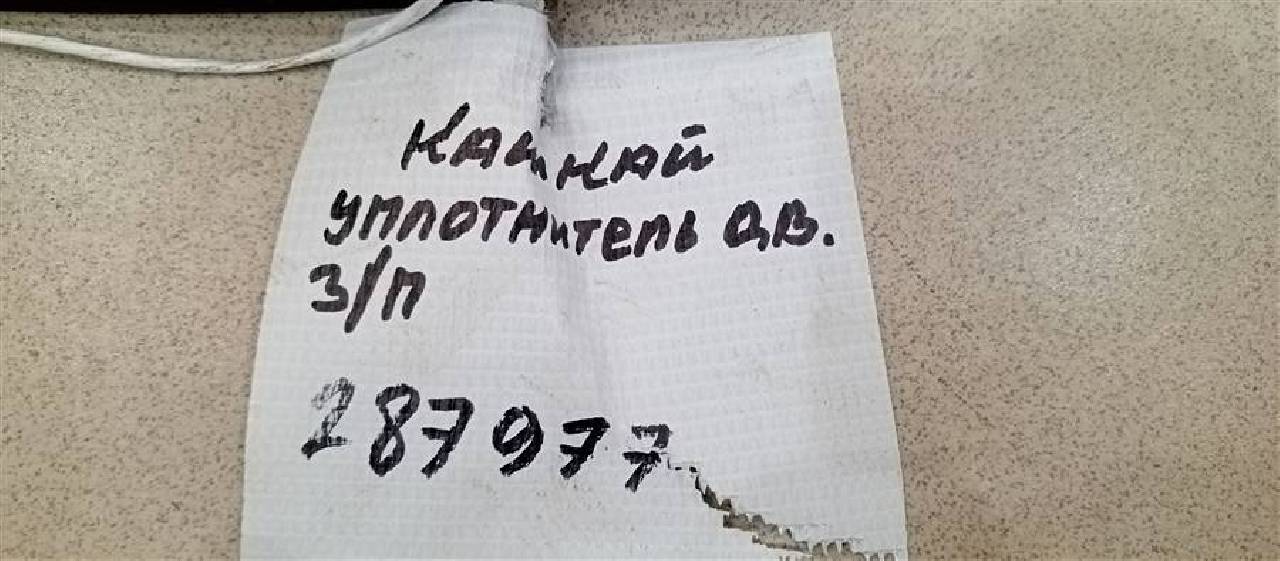 КАШКАЙ
УПЛОТНИТЕЛЬ ДВ.
З/П
287977